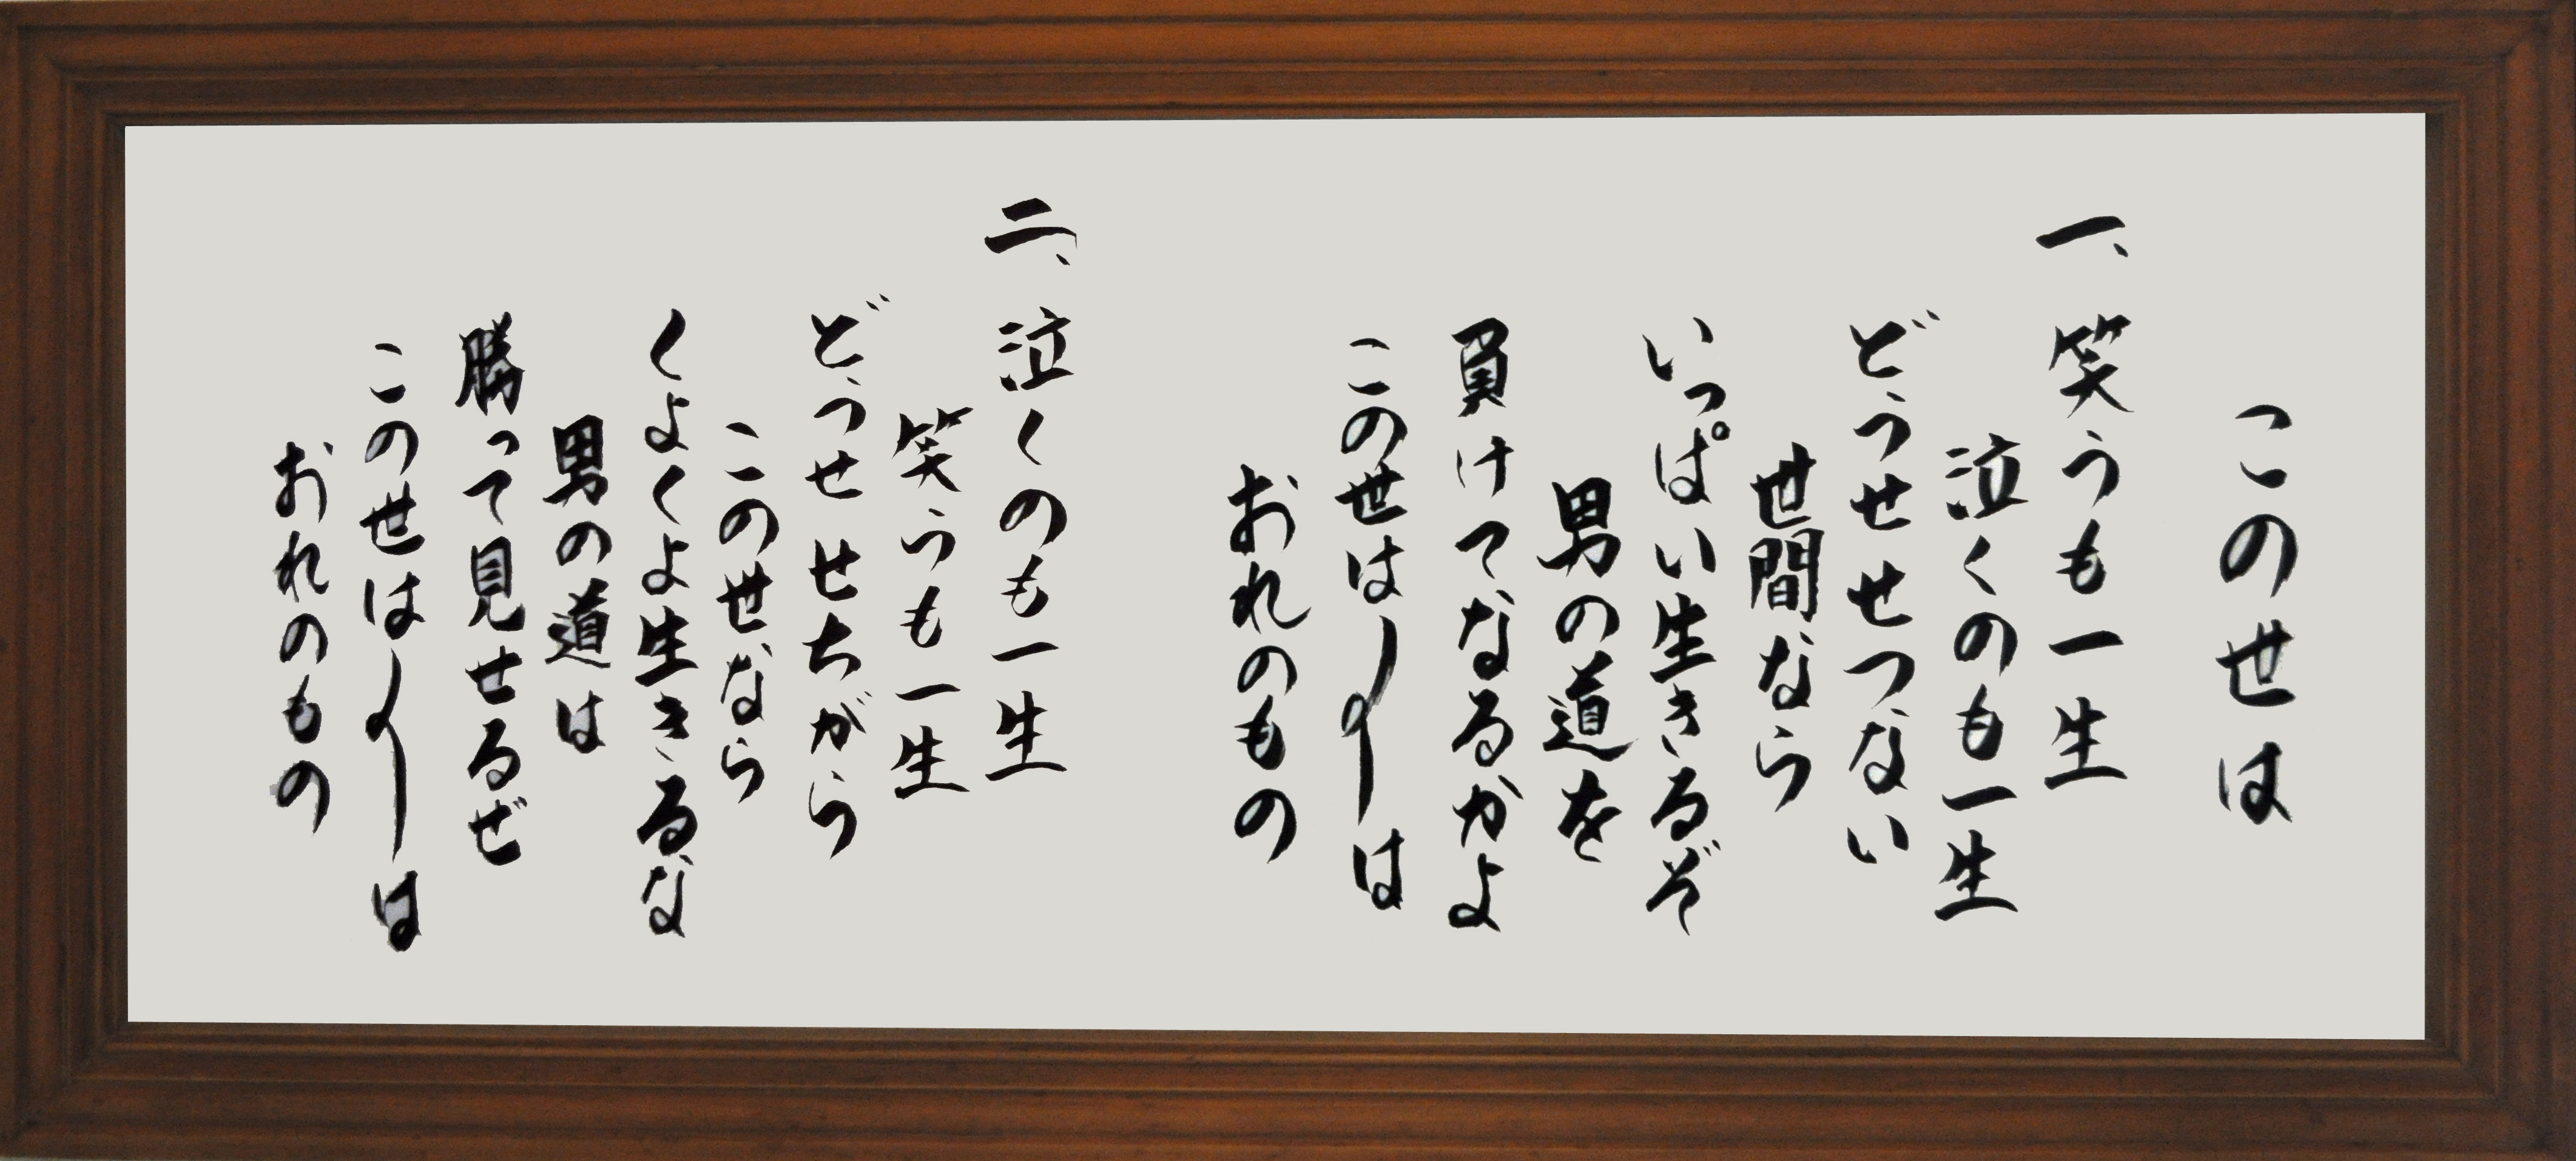 このせは
一、笑うも一生
泣くのも一生
どうせせつない
世間なら
いっぱい生きるぞ
男の道を
負けてなるかよ
この世は〳〵は
おれのもの
二、泣くのも一生
笑うも一生
どうせせちがら
この世なら
くよくよ生きるな
男の道は
勝って見せるぜ
この世は〳〵は
おれのもの